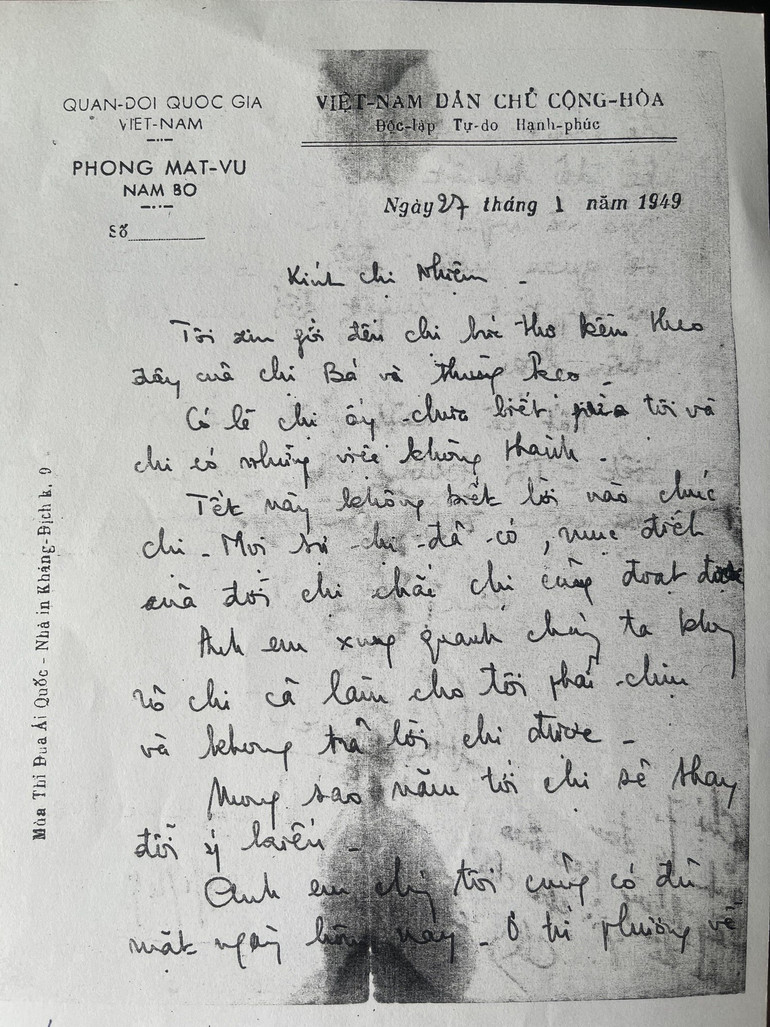 QUAN-DOI QUOC GIA
VIET-NAM
PHONG MAT-VU
NAM BO
Số
VIỆT-NAM DÂN CHỦ CỘNG-HÒA
Độc-lập Tự-do Hạnh-phúc
Ngày 27 tháng 1 năm 1949
Kính chị Nhiệm -
Tôi xin gởi đến chị bức thơ kèm theo
đây của chị Bá và
Có lẽ chị ấy chưa biết giữa tôi và
chị có những việc không thành -
Tết này không biết lời nào chúc
chị - Mọi sự chị đã có, mục đích
của đời chị chắc chị cũng đoạt được
Anh em xung quanh chúng ta không
rõ chi cả làm cho tôi phải chịu
và không trả lời chi được -
Mong sao năm tới chị sẽ thay
đổi ý kiến -
Anh em chúng tôi cũng có đủ
mặt ngày hôm nay - Ở phương về
Mùa Thi Đua Ái Quốc - Nhà in Kháng-Địch k. 9